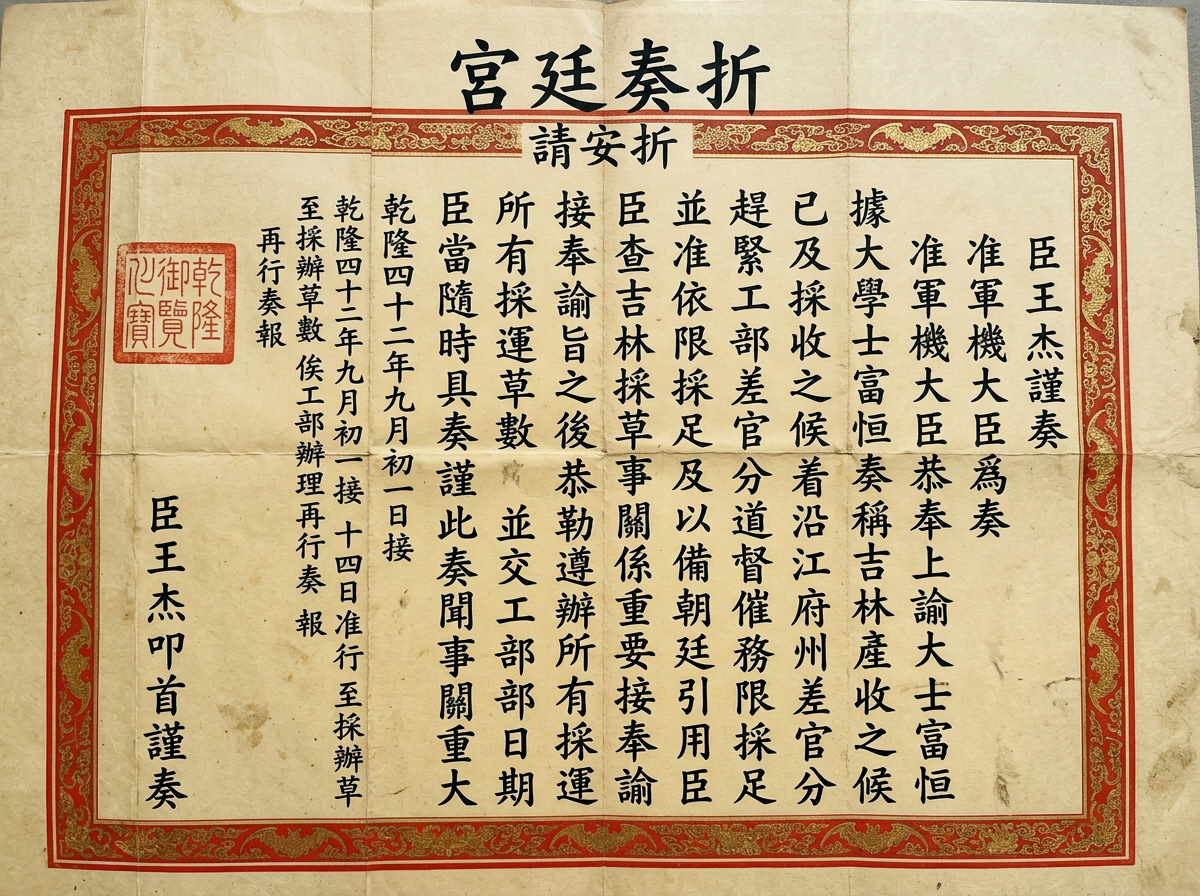 宮廷奏折
請安折
臣王杰謹奏
准軍機大臣爲奏
准軍機大臣恭奉上諭大士富恒
據大學士富恒奏稱吉林產收之候
已及採收之候着沿江府州差官分
趕緊工部差官分道督催務限採足
並准依限採足及以備朝廷引用臣
臣查吉林採草事關係重要接奉諭
接奉諭旨之後恭勒遵辦所有採運
所有採運草數 並交工部部日期
臣當隨時具奏謹此奏聞事關重大
乾隆四十二年九月初一日接
乾隆四十二年九月初一接 十四日准行 至採辦草
至採辦草數 俟工部辦理再行奏 報
再行奏報
乾隆
御覽
寶
臣王杰叩首謹奏